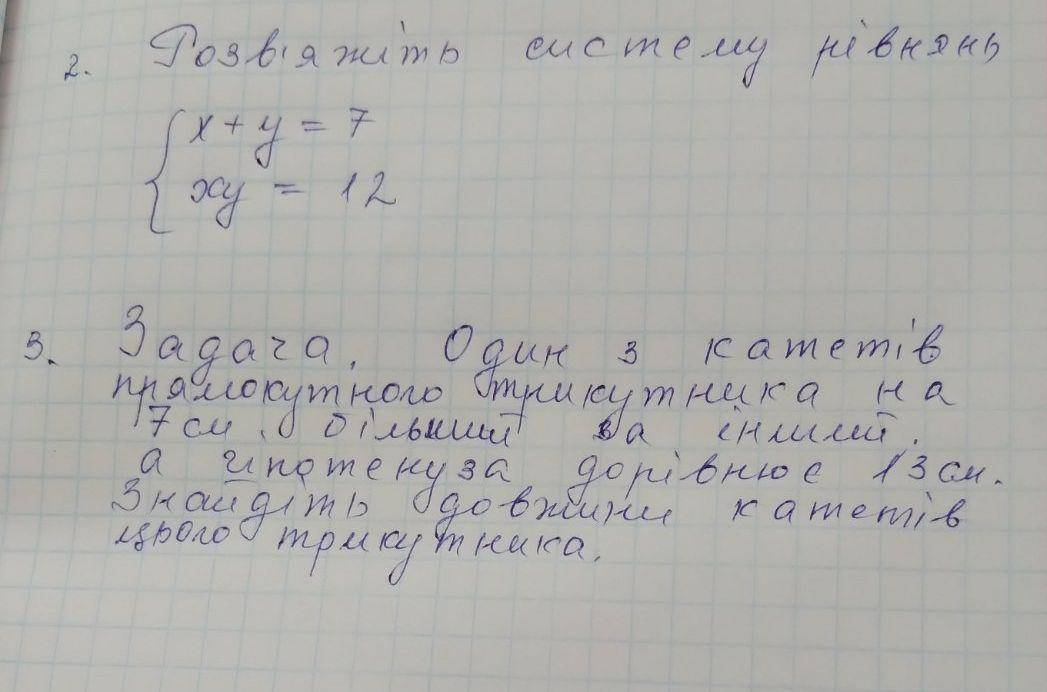 2. Розв'яжіть систему рівнянь
{ x + y = 7
xy = 12
3. Задача. Один з катетів
прямокутного трикутника на
7 см. більший за інший.
а гіпотенуза дорівнює 13 см.
Знайдіть довжини катетів
цього трикутника.